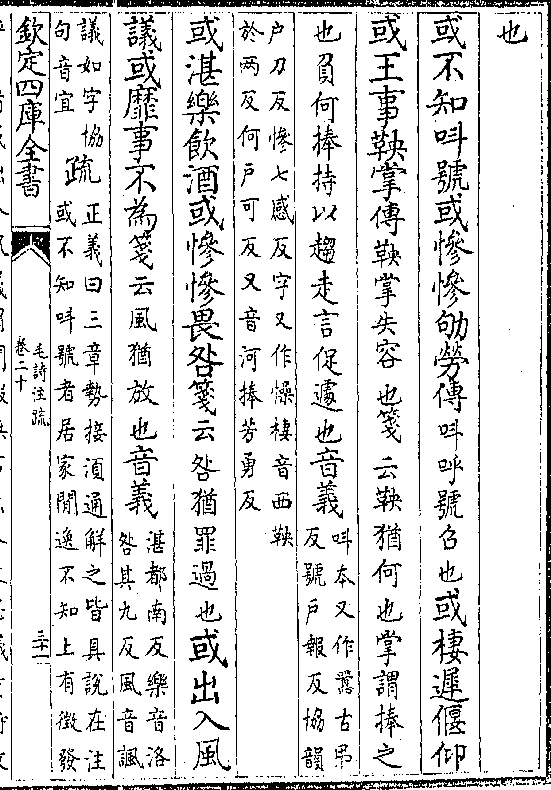 也
或不知呌號或慘慘劬勞傳呌呼號召也或棲遲偃仰
或王事鞅掌傳鞅掌失容也箋云鞅猶何也掌謂捧之
也負何捧持以趨走言促遽也音義呌本又作嚻古弔
反號戶報反協韻
戶刀反慘七感反字又作懆棲音西鞅
於两反何戶可反又音河捧芳勇反
或湛樂飲酒或慘慘畏咎箋云咎猶罪過也或出入風
議或靡事不為箋云風猶放也音義湛都南反樂音洛
咎其九反風音諷
議如字協
句音宜
疏正義曰三章勢接須通解之皆具說在注
或不知呌號者居家閒逸不知上有徵發
欽定四庫全書
毛詩注疏
卷二十
三十一